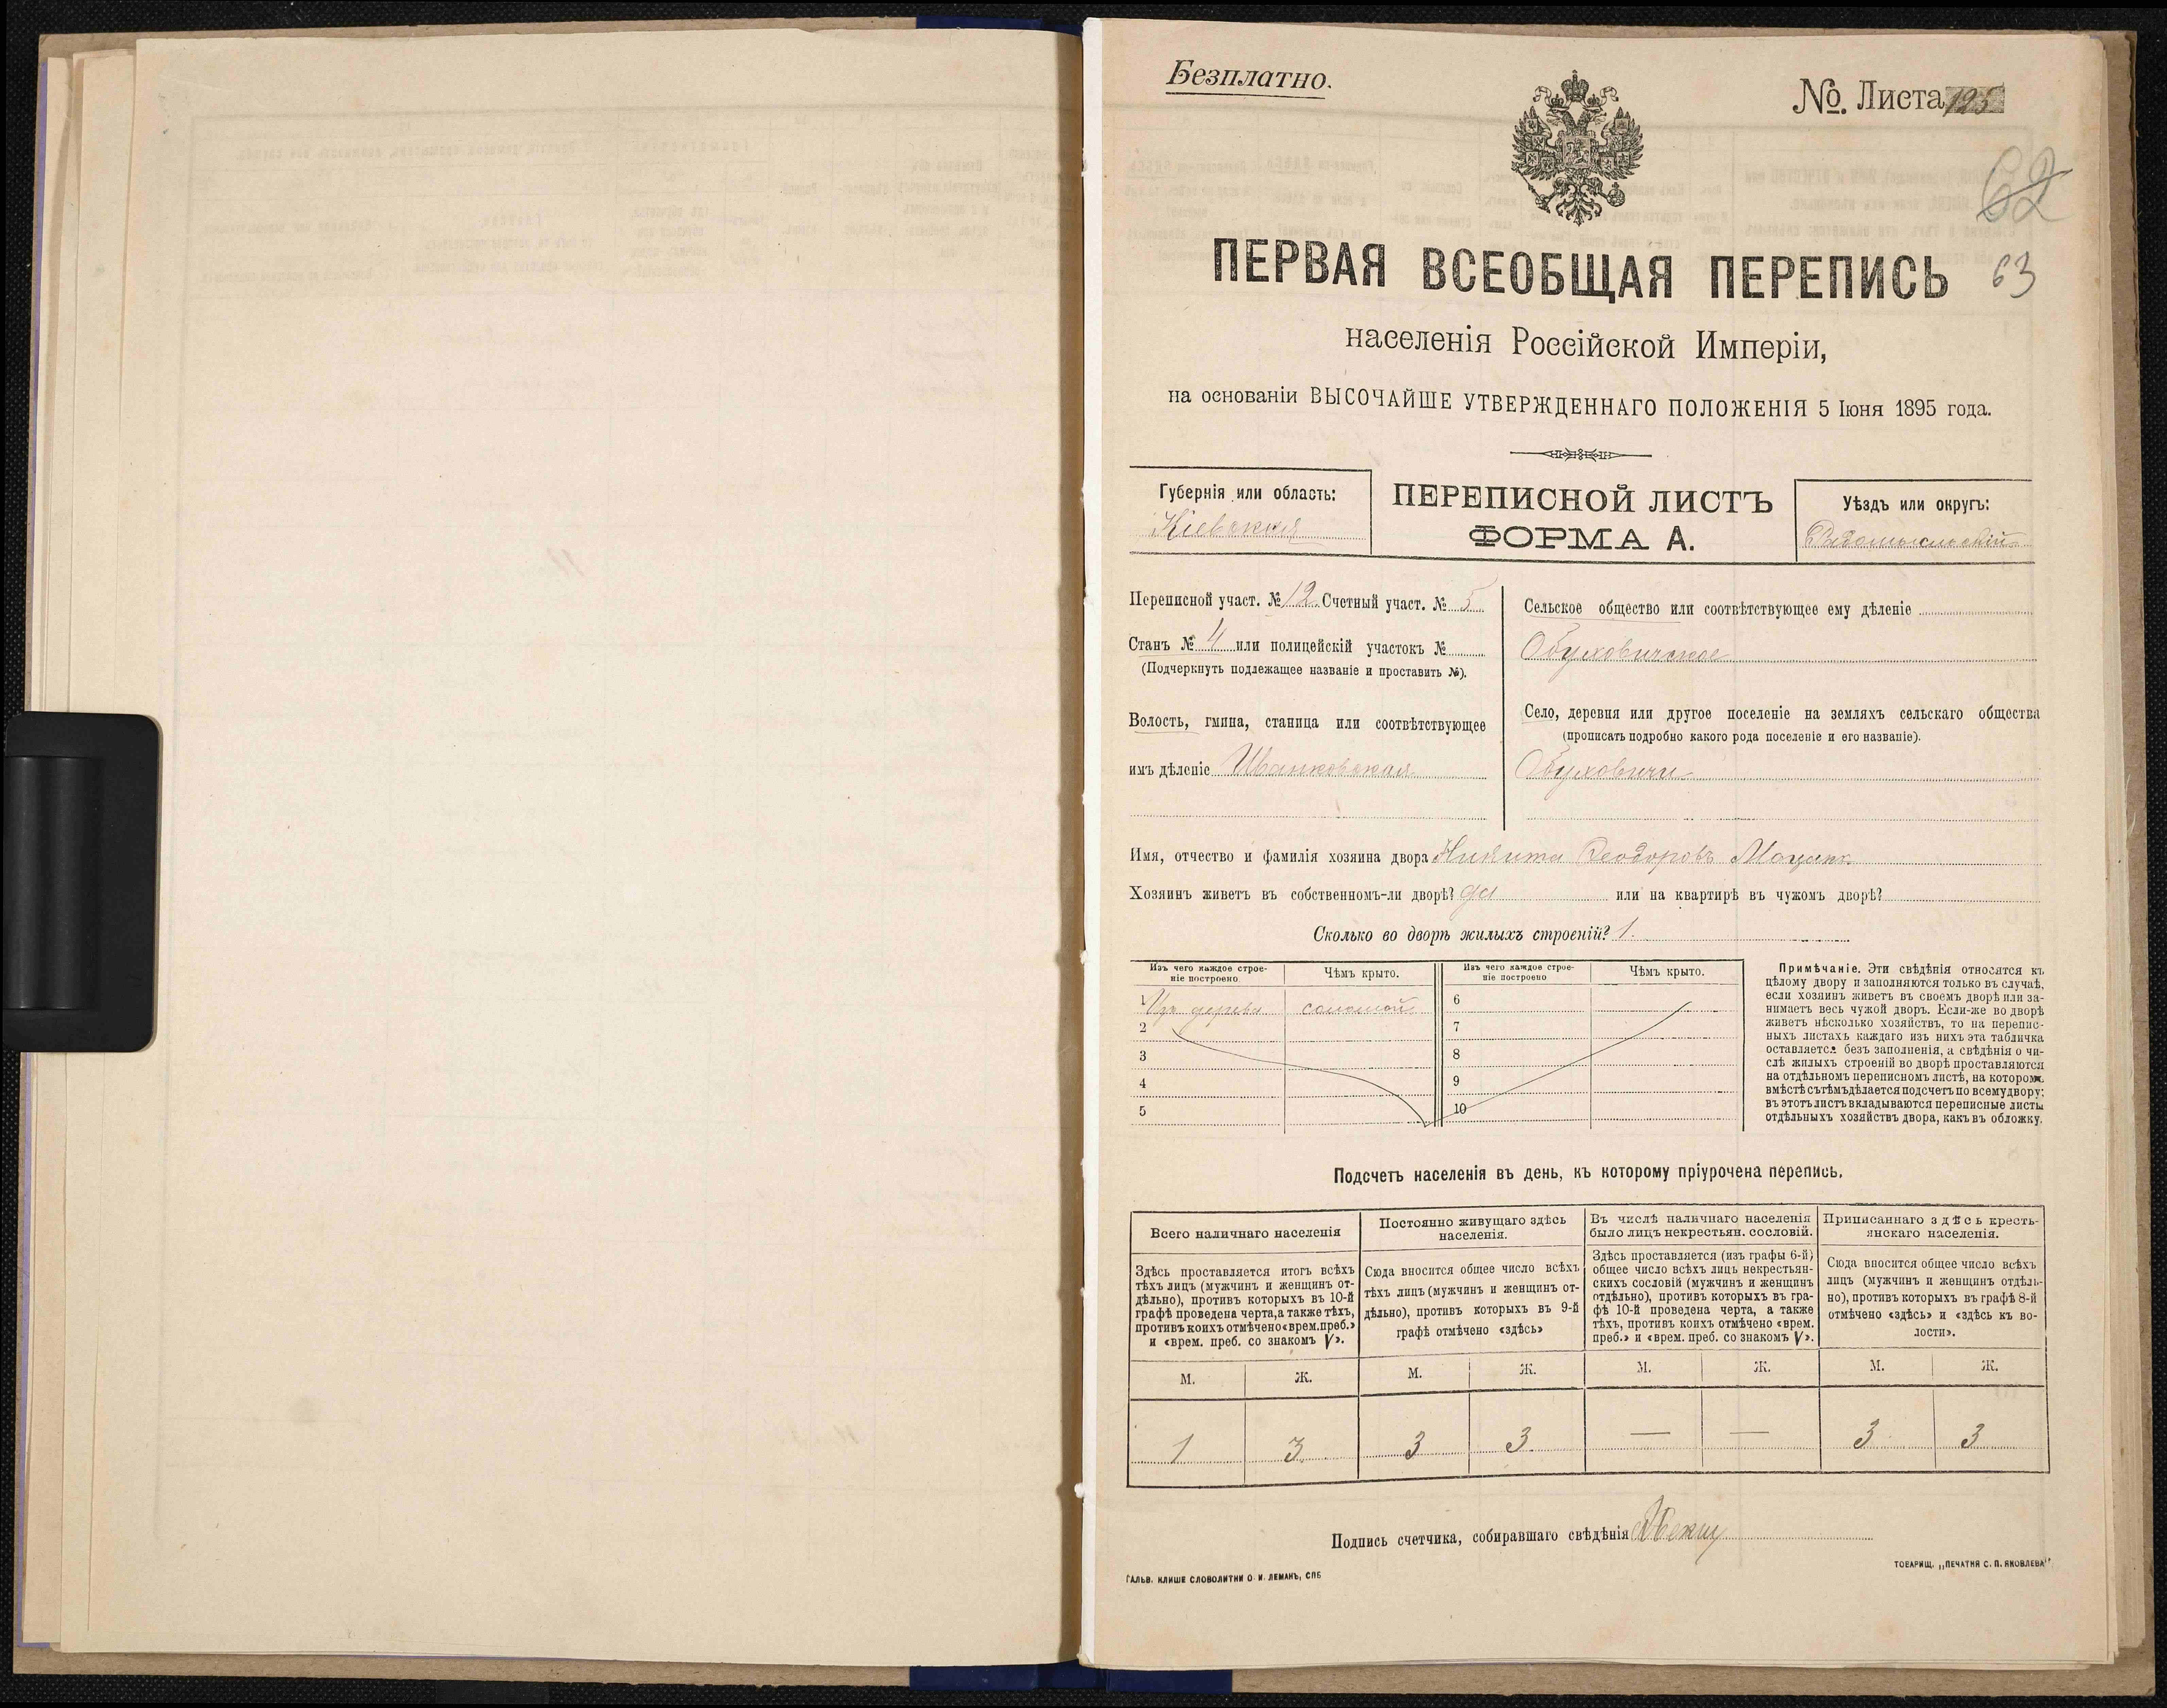 Безплатно.
№ Листа 125
62
63
ПЕРВАЯ ВСЕОБЩАЯ ПЕРЕПИСЬ
населенія Россійской Имперіи,
на основаніи ВЫСОЧАЙШЕ УТВЕРЖДЕННАГО ПОЛОЖЕНІЯ 5 Іюня 1895 года.
Губернія или область:
Кіевская
ПЕРЕПИСНОЙ ЛИСТЪ
ФОРМА А.
Уѣздъ или округъ:
Радомысльскій
Переписной участ. № 12. Счетный участ. № 5
Станъ № 4 или полицейскій участокъ №
(Подчеркнуть подлежащее названіе и проставить №).
Волость, гмина, станица или соотвѣтствующее
имъ дѣленіе Иванковская
Сельское общество или соотвѣтствующее ему дѣленіе
Обуховичское
Село, деревня или другое поселеніе на земляхъ сельскаго общества
(прописать подробно какого рода поселеніе и его названіе).
Обуховичи
Имя, отчество и фамилія хозяина двора Никита Ѳеодоровъ
Хозяинъ живетъ въ собственномъ-ли дворѣ? да или на квартирѣ въ чужомъ дворѣ?
Сколько во дворѣ жилыхъ строеній? 1.
Изъ чего каждое строе-
ніе построено
Чѣмъ крыто.
Изъ чего каждое строе-
ніе построено
Чѣмъ крыто.
1 Изъ дерева соломой
2
3
4
5
6
7
8
9
10
Примѣчаніе. Эти свѣдѣнія относятся къ
цѣлому двору и заполняются только въ случаѣ,
если хозяинъ живетъ въ своемъ дворѣ или за-
нимаетъ весь чужой дворъ. Если-же во дворѣ
живетъ нѣсколько хозяйствъ, то на перепис-
ныхъ листахъ каждаго изъ нихъ эта табличка
оставляется безъ заполненія, а свѣдѣнія о чи-
слѣ жилыхъ строеній во дворѣ проставляются
на отдѣльномъ переписномъ листѣ, на которомъ
вмѣстѣ съ тѣмъ дѣлается подсчетъ по всему двору;
въ этотъ листъ вкладываются переписные листы
отдѣльныхъ хозяйствъ двора, какъ въ обложку.
Подсчетъ населенія въ день, къ которому пріурочена перепись.
Всего наличнаго населенія
Здѣсь проставляется итогъ всѣхъ
тѣхъ лицъ (мужчинъ и женщинъ от-
дѣльно), противъ которыхъ въ 10-й
графѣ проведена черта, а также тѣхъ,
противъ коихъ отмѣчено «врем. преб.»
и «врем. преб. со знакомъ V».
Постоянно живущаго здѣсь
населенія.
Сюда вносится общее число всѣхъ
тѣхъ лицъ (мужчинъ и женщинъ от-
дѣльно), противъ которыхъ въ 9-й
графѣ отмѣчено «здѣсь»
Въ числѣ наличнаго населенія
было лицъ некрестьян. сословій.
Здѣсь проставляется (изъ графы 6-й)
общее число всѣхъ лицъ некрестьян-
скихъ сословій (мужчинъ и женщинъ
отдѣльно), противъ которыхъ въ гра-
фѣ 10-й проведена черта, а также
тѣхъ, противъ коихъ отмѣчено «врем.
преб.» и «врем. преб. со знакомъ V».
Приписаннаго здѣсь кресть-
янскаго населенія.
Сюда вносится общее число всѣхъ
лицъ (мужчинъ и женщинъ отдѣль-
но), противъ которыхъ въ графѣ 8-й
отмѣчено «здѣсь» и «здѣсь къ во-
лости».
М. Ж. М. Ж. М. Ж. М. Ж.
1 3 3 3. — — 3 3
Подпись счетчика, собиравшаго свѣдѣнія
ГАЛЬВ. КЛИШЕ СЛОВОЛИТНИ О. И. ЛЕМАНЪ, СПБ
ТОВАРИЩ. „ПЕЧАТНЯ С. П. ЯКОВЛЕВА"